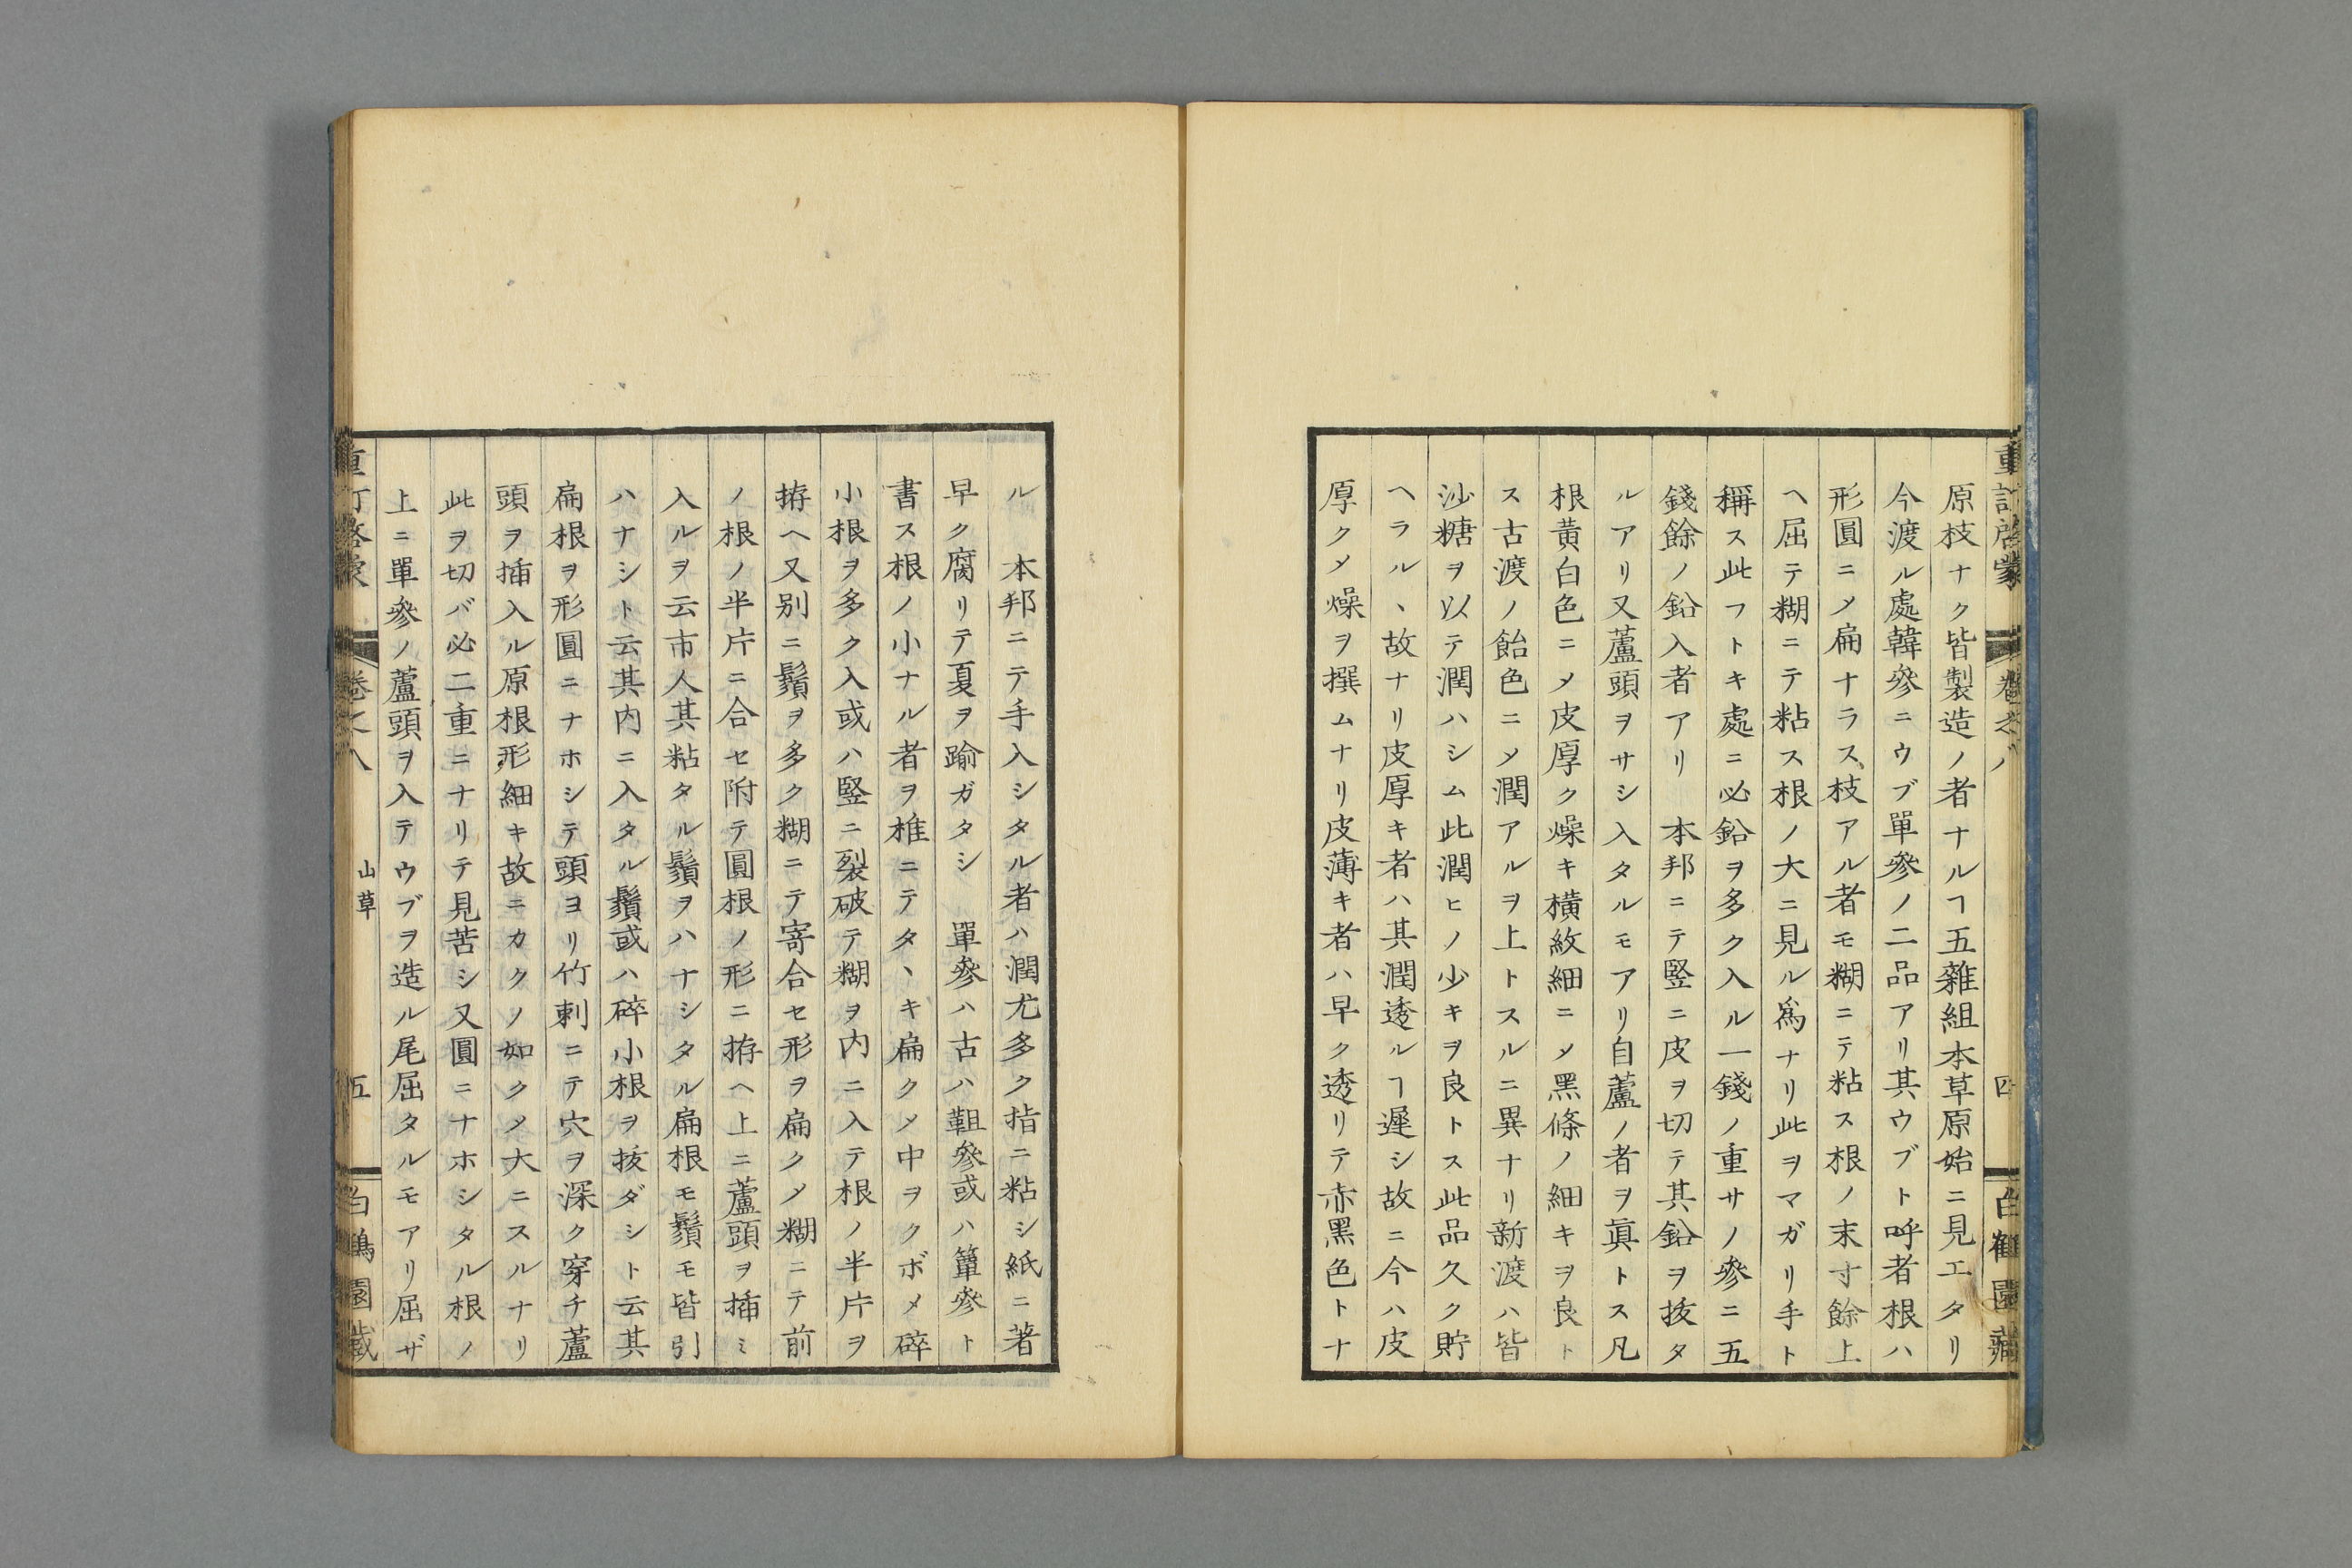 重訂啓蒙 卷之八 四 白鶴園藏
原枝ナク皆製造ノ者ナルヿ五雜組本草原始ニ見エタリ
今渡ル處韓參ニウブ單參ノ二品アリ其ウブト呼者根ハ
形圓ニ〆扁ナラス枝アル者モ糊ニテ粘ス根ノ末寸餘上
ヘ屈テ糊ニテ粘ス根ノ大ニ見ル爲ナリ此ヲマガリ手ト
稱ス此フトキ處ニ必鉛ヲ多ク入ル一錢ノ重サノ參ニ五
錢餘ノ鉛入者アリ 本邦ニテ竪ニ皮ヲ切テ其鉛ヲ拔タ
ルアリ又蘆頭ヲサシ入タルモアリ自蘆ノ者ヲ眞トス凡
根黃白色ニ〆皮厚ク燥キ橫紋細ニ〆黑條ノ細キヲ良ト
ス古渡ノ飴色ニ〆潤アルヲ上トスルニ異ナリ新渡ハ皆
沙糖ヲ以テ潤ハシム此潤ヒノ少キヲ良トス此品久ク貯
ヘラル丶故ナリ皮厚キ者ハ其潤透ルヿ遲シ故ニ今ハ皮
厚ク〆燥ヲ撰ムナリ皮薄キ者ハ早ク透リテ赤黑色トナ
ル 本邦ニテ手入シタル者ハ潤尤多ク指ニ粘シ紙ニ著
早ク腐リテ夏ヲ踰ガタシ 單參ハ古ハ靼參或ハ簞參ト
書ス根ノ小ナル者ヲ椎ニテタ丶キ扁ク〆中ヲクボメ碎
小根ヲ多ク入或ハ竪ニ裂破テ糊ヲ內ニ入テ根ノ半片ヲ
拵ヘ又別ニ鬚ヲ多ク糊ニテ寄合セ形ヲ扁ク〆糊ニテ前
ノ根ノ半片ニ合セ附テ圓根ノ形ニ拵ヘ上ニ蘆頭ヲ揷ミ
入ルヲ云市人其粘タル鬚ヲハナシタル扁根モ鬚モ皆引
ハナシト云其內ニ入タル鬚或ハ碎小根ヲ拔ダシト云其
扁根ヲ形圓ニナホシテ頭ヨリ竹刺ニテ穴ヲ深ク穿チ蘆
頭ヲ揷入ル原根形細キ故ニカクノ如ク〆大ニスルナリ
此ヲ切バ必二重ニナリテ見苦シ又圓ニナホシタル根ノ
上ニ單參ノ蘆頭ヲ入テウブヲ造ル尾屈タルモアリ屈ザ
重訂啓蒙 卷之八 山草 五 白鶴園藏